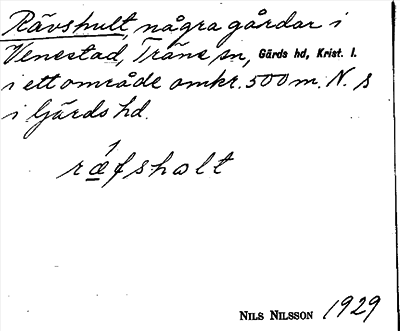 Rävshult, några gårdar i
Venestad, Träne sn, Gärds hd, Krist. l.
i ett område omkr. 500 m. N. s
i Gärds hd.
ræfshålt
NILS NILSSON 1929